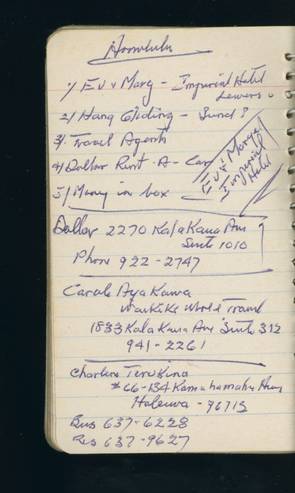 Honolulu
1/ Ev & Marg - Imperial Hotel
Lewers
2/ Hang Gliding - Sund ?
3/ Travel Agents
4/ Dollar Rent-A-Car
5/ Money in box
Ev & Marge
Imperial
Hotel
Dollar 2270 Kalakaua Ave
Suite 1010
Phone 922-2747
Carole Ayakawa
Waikiki World Travel
1833 Kalakaua Ave Suite 312
941-2261
Charlene Teruya
#66-134 Kamehameha Hwy
Haleiwa - 96712
Bus 637-6228
Res 637-9627